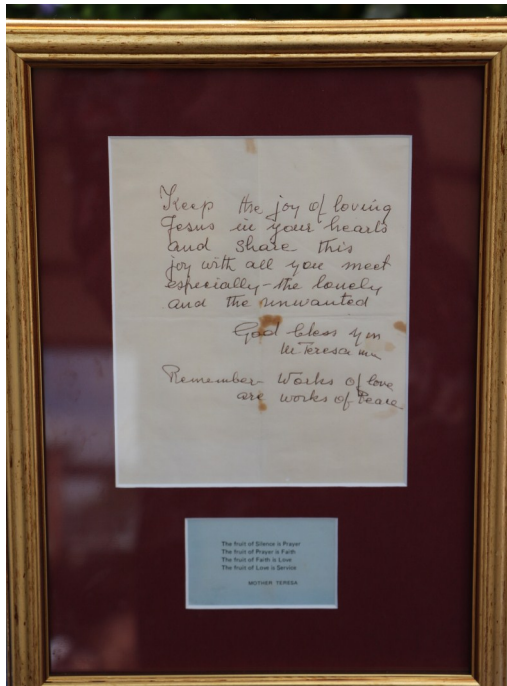 Keep the joy of loving
Jesus in your hearts
and share this
joy with all you meet
especially-the lonely
and the unwanted
God bless you
M Teresa mc
Remember Works of love
are works of Peace
The fruit of Silence is Prayer
The fruit of Prayer is Faith
The fruit of Faith is Love
The fruit of Love is Service
MOTHER TERESA